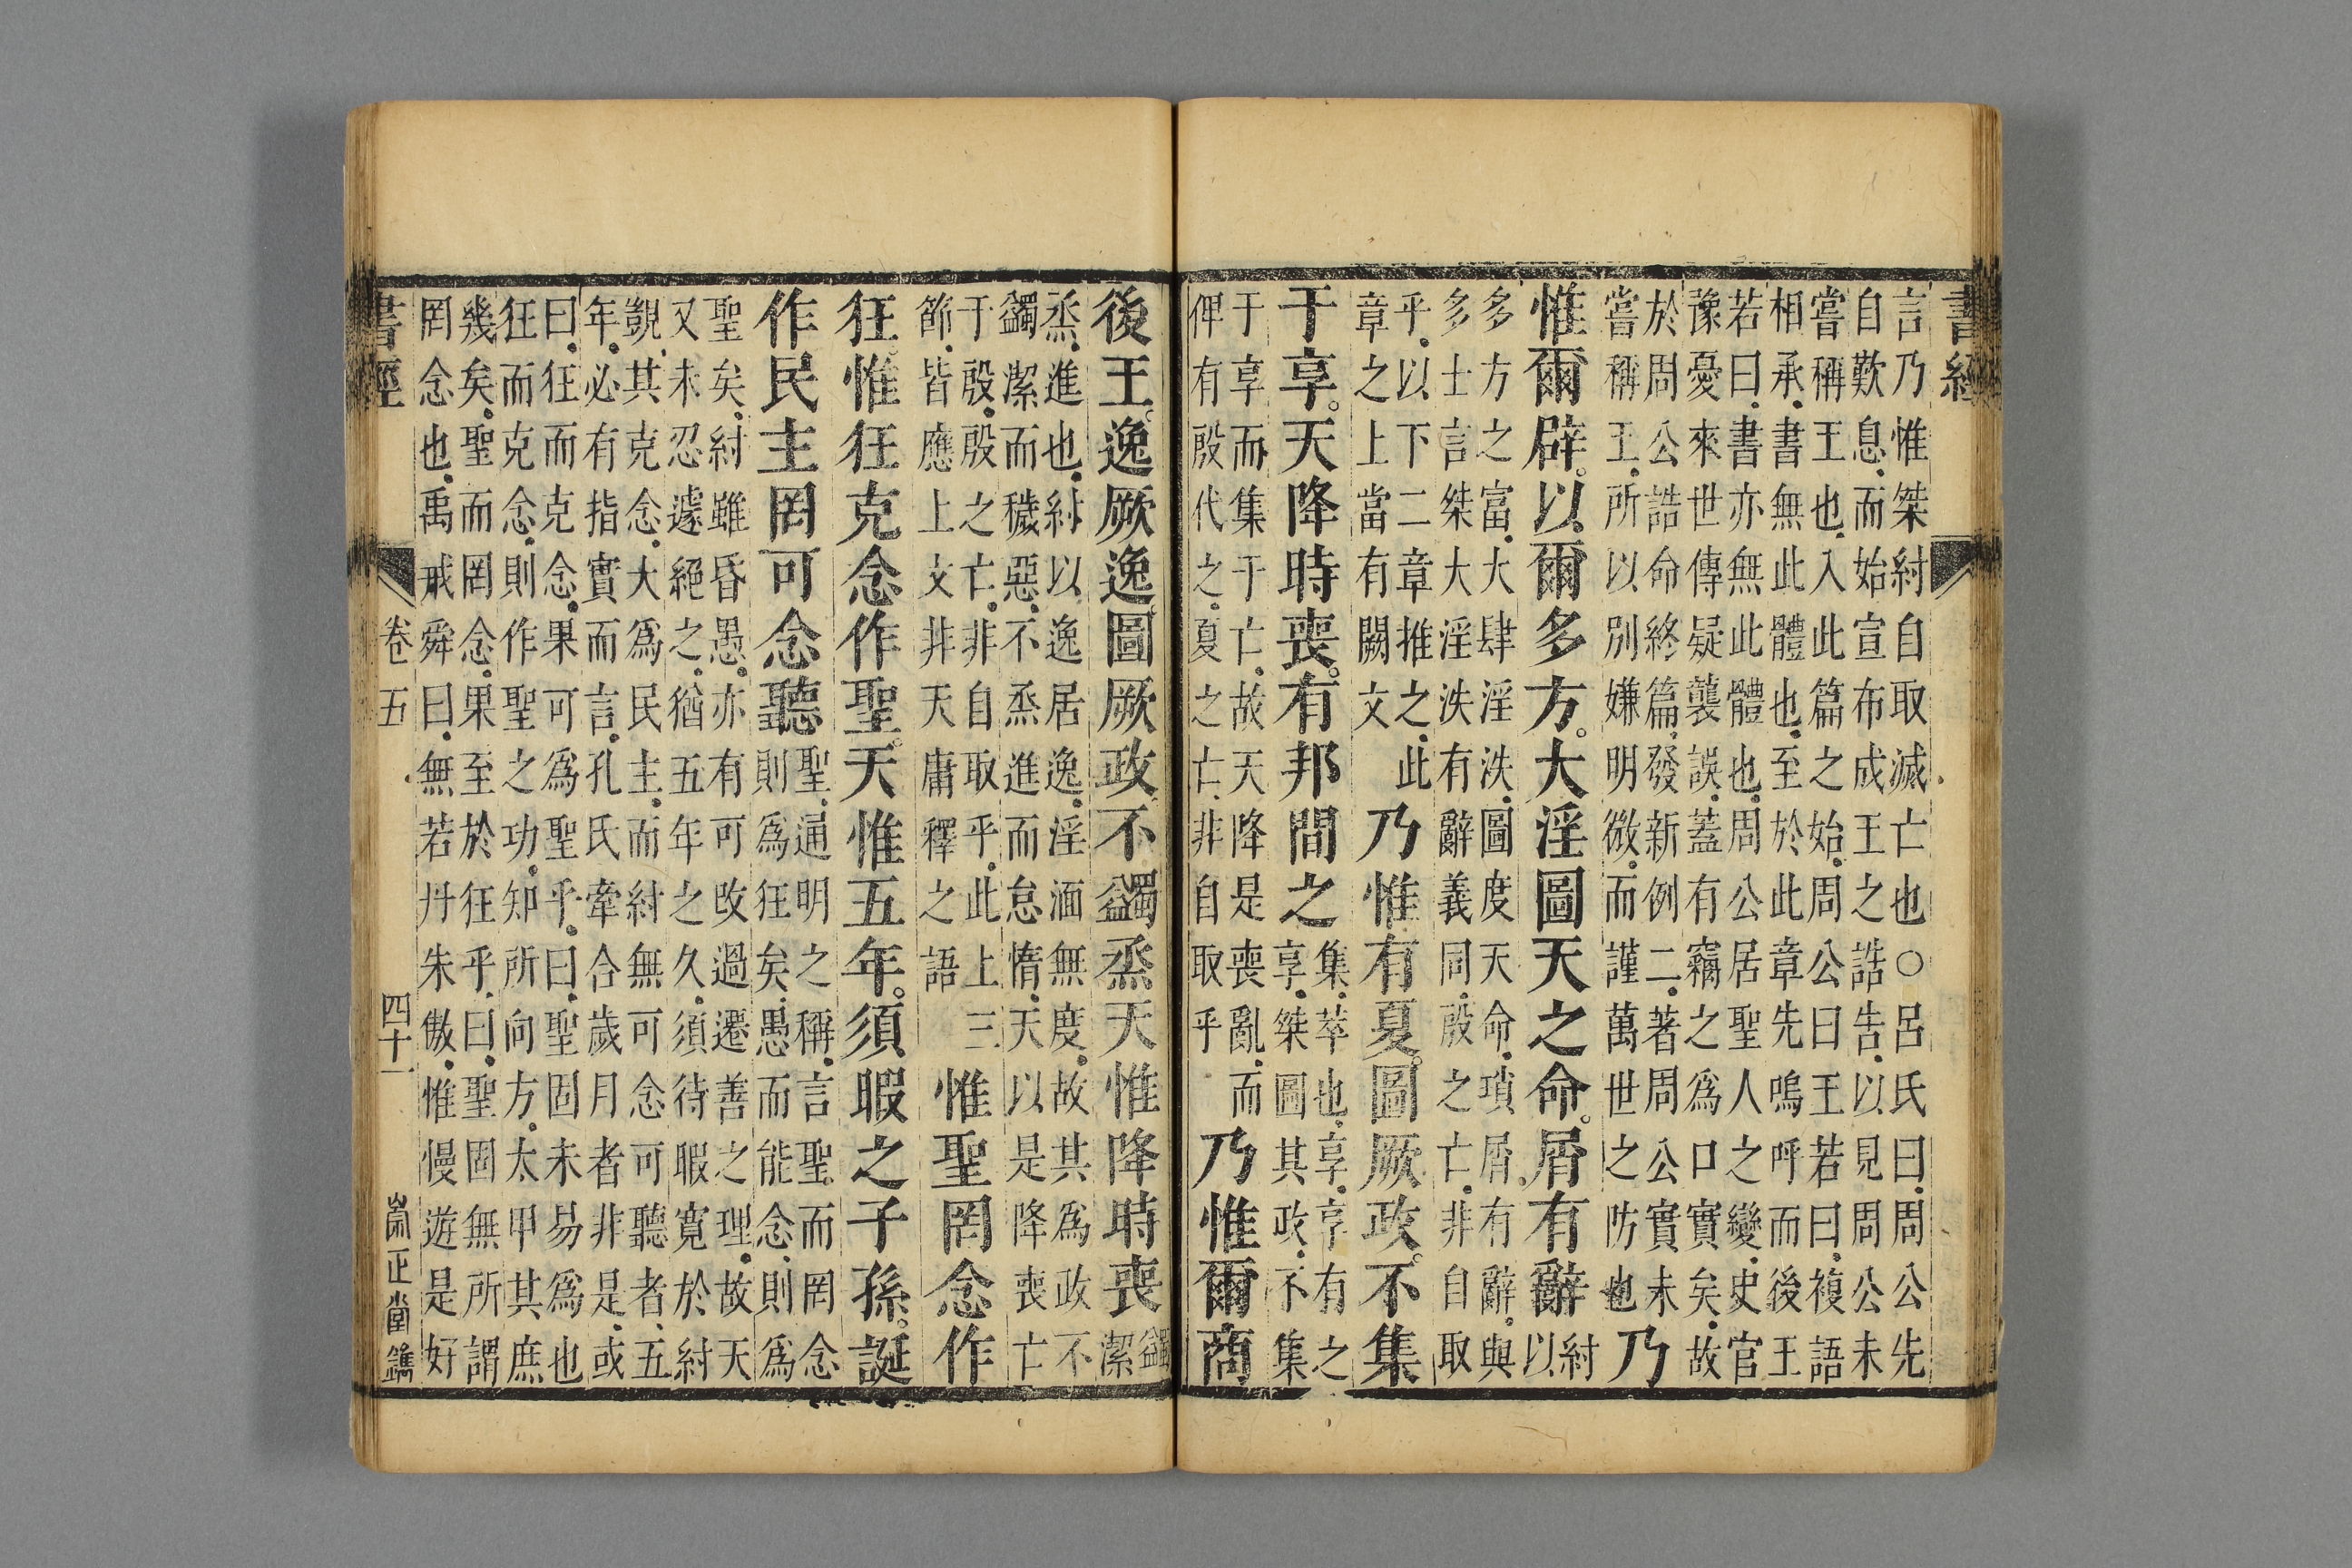 書經
言乃惟桀紂自取滅亡也○呂氏曰周公先
自歎息而始宣布成王之誥告以見周公未
嘗稱王也入此篇之始周公曰王若曰複語
相承書無此體也至於此章先嗚呼而後王
若曰書亦無此體也周公居聖人之變史官
豫憂來世傳疑襲誤蓋有竊之為口實矣故
於周公誥命終篇發新例二著周公實未
嘗稱王所以別嫌明微而謹萬世之防也乃
惟爾辟以爾多方大淫圖天之命屑有辭紂以
多方之富大肆淫泆圖度天命瑣屑有辭與
多士言桀大淫泆有辭義同殷之亡非自取
乎以下二章推之此
章之上當有闕文
乃惟有夏圖厥政不集
于享天降時喪有邦間之集萃也享享有之
享桀圖其政不集
于享而集于亡故天降是喪亂而
俾有殷代之夏之亡非自取乎
乃惟爾商
後王逸厥逸圖厥政不蠲烝天惟降時喪蠲
潔
烝進也紂以逸居逸淫湎無度故其為政不
蠲潔而穢惡不烝進而怠惰天以是降喪亡
于殷殷之亡非自取乎此上三
節皆應上文非天庸釋之語
惟聖罔念作
狂惟狂克念作聖天惟五年須暇之子孫誕
作民主罔可念聽聖通明之稱言聖而罔念
則為狂矣愚而能念則為
聖矣紂雖昏愚亦有可改過遷善之理故天
又未忍遽絕之猶五年之久須待暇寬於紂
覬其克念大為民主而紂無可念可聽者五
年必有指實而言孔氏牽合歲月者非是或
曰狂而克念果可為聖乎曰聖固未易為也
狂而克念則作聖之功知所向方太甲其庶
幾矣聖而罔念果至於狂乎曰聖固無所謂
罔念也禹戒舜曰無若丹朱傲惟慢遊是好
書經　卷五　四十一　崇正堂鐫